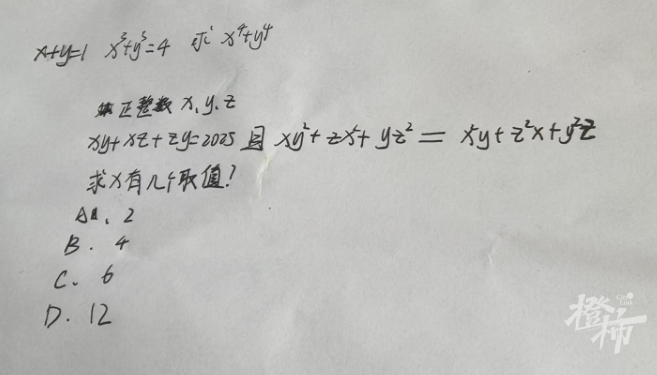 x+y=1 x³+y³=4 求 x⁴+y⁴
正整数 x, y, z
xy+xz+zy=2025 且 xy²+zx²+yz² = x²y+z²x+y²z
求x有几个取值?
A. 2
B. 4
C. 6
D. 12
橙柿